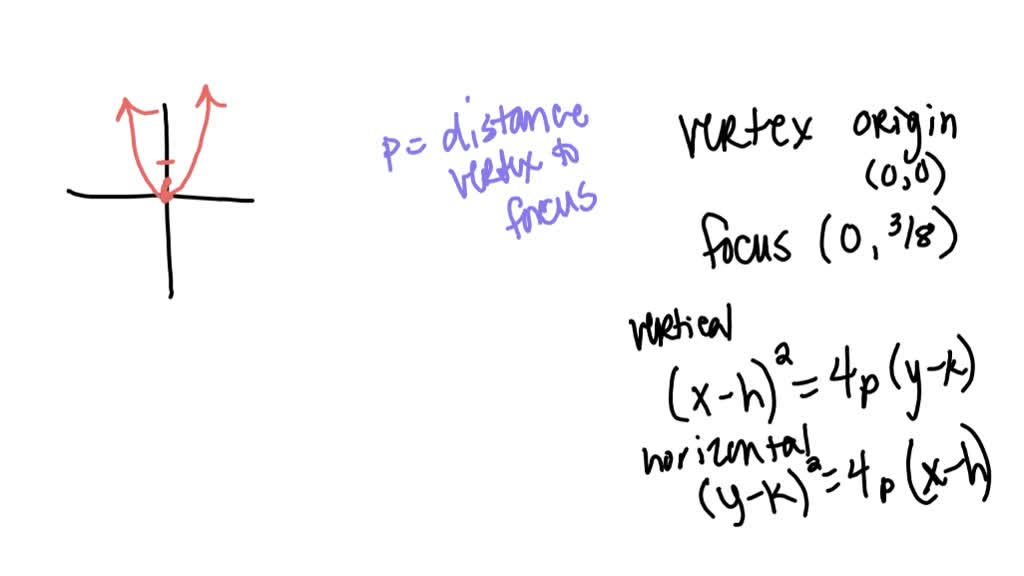 p = distance
vertex to
focus
vertex origin
(0,0)
focus (0, 3/8)
vertical
(x-h)² = 4p(y-k)
horizontal
(y-k)² = 4p(x-h)